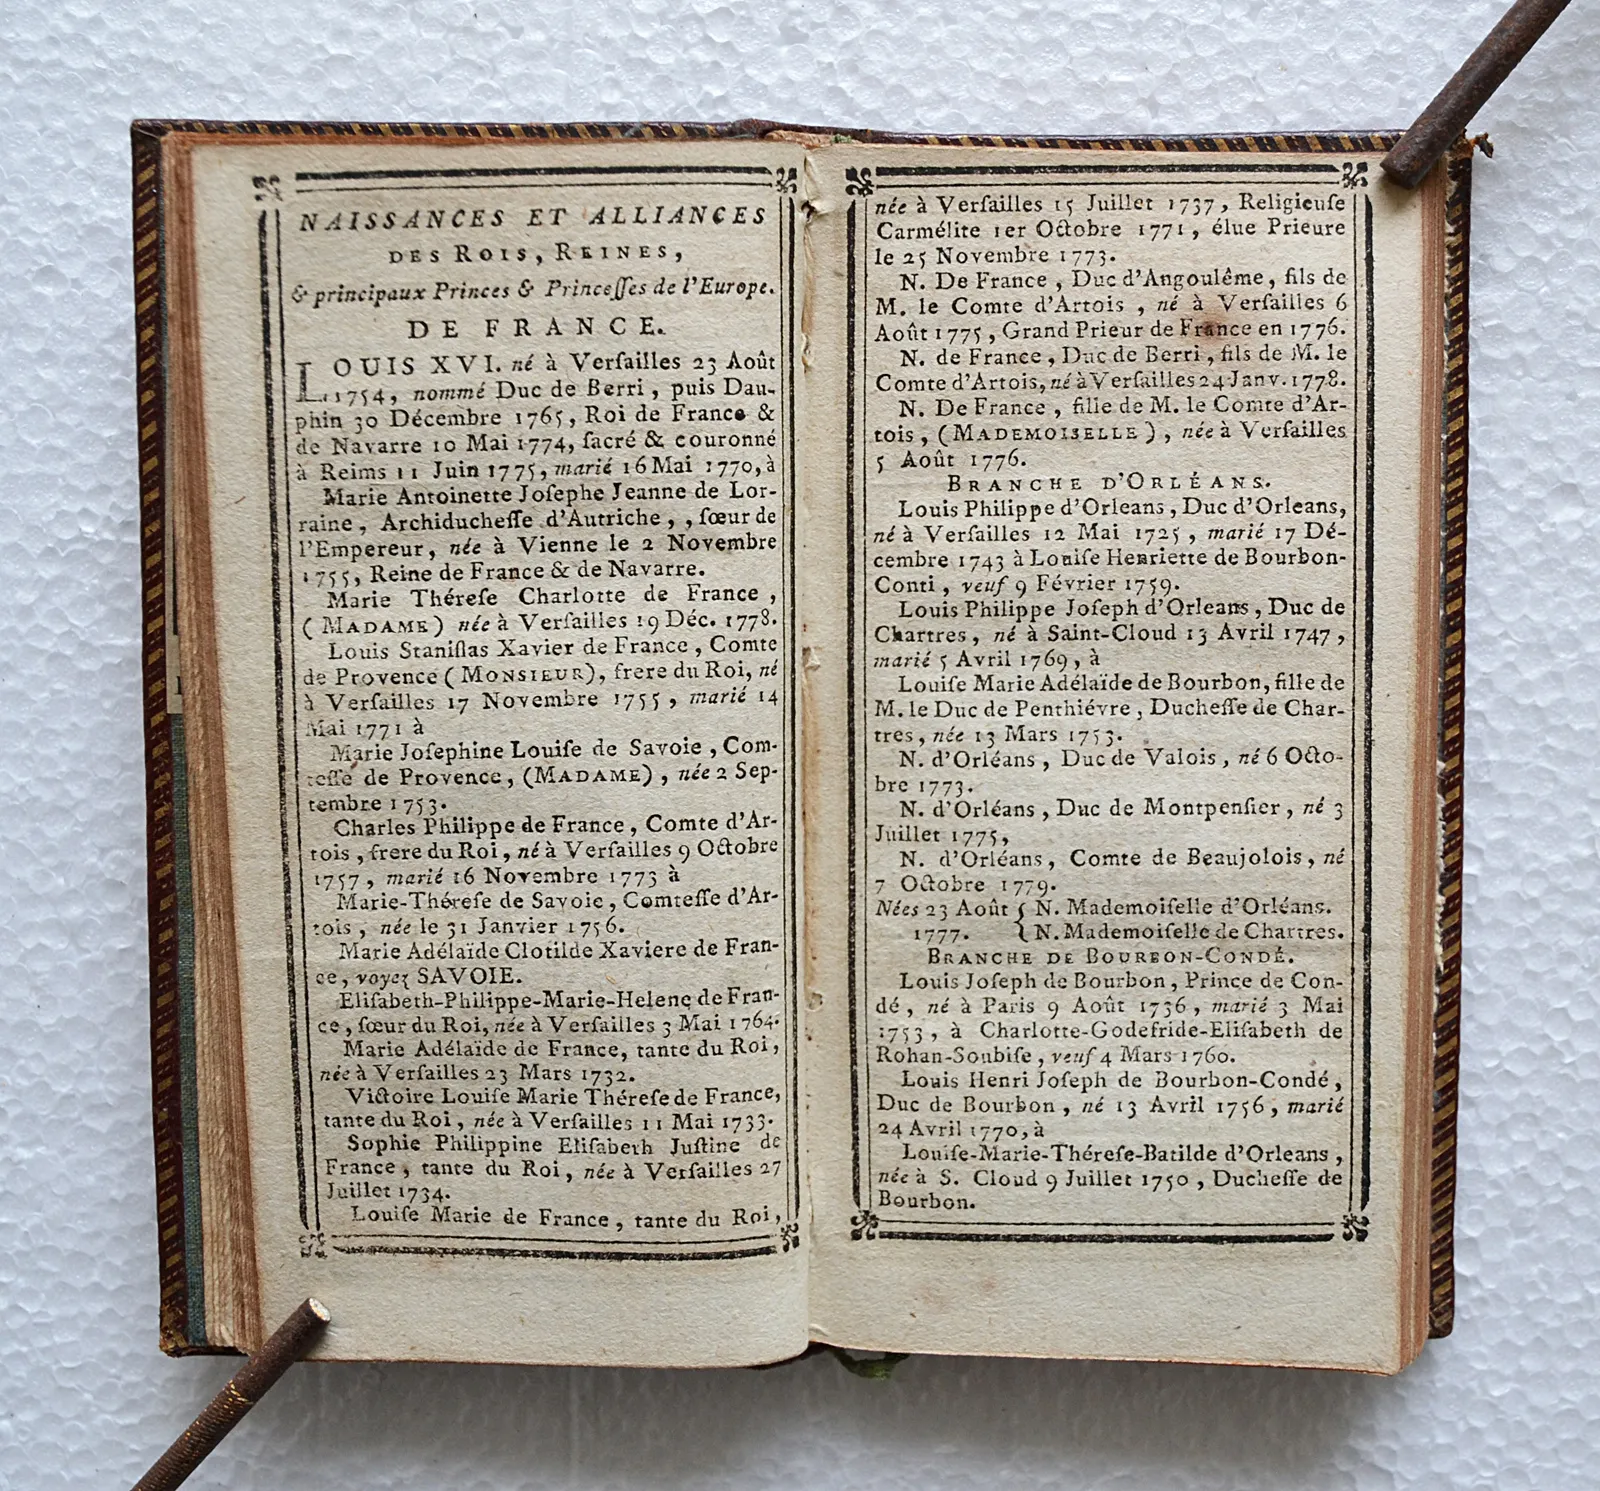 NAISSANCES ET ALLIANCES
DES ROIS, REINES,
& principaux Princes & Princeſſes de l'Europe.
DE FRANCE.
LOUIS XVI. né à Verſailles 23 Août
1754, nommé Duc de Berri, puis Dau-
phin 30 Décembre 1765, Roi de France &
de Navarre 10 Mai 1774, ſacré & couronné
à Reims 11 Juin 1775, marié 16 Mai 1770, à
Marie Antoinette Joſephe Jeanne de Lor-
raine, Archiducheſſe d'Autriche, , ſœur de
l'Empereur, née à Vienne le 2 Novembre
1755, Reine de France & de Navarre.
Marie Théreſe Charlotte de France,
(MADAME) née à Verſailles 19 Déc. 1778.
Louis Staniſlas Xavier de France, Comte
de Provence (MONSIEUR), frere du Roi, né
à Verſailles 17 Novembre 1755, marié 14
Mai 1771 à
Marie Joſephine Louiſe de Savoie, Com-
teſſe de Provence, (MADAME), née 2 Sep-
tembre 1753.
Charles Philippe de France, Comte d'Ar-
tois, frere du Roi, né à Verſailles 9 Octobre
1757, marié 16 Novembre 1773 à
Marie-Théreſe de Savoie, Comteſſe d'Ar-
tois, née le 31 Janvier 1756.
Marie Adélaïde Clotilde Xaviere de Fran-
ce, voyez SAVOIE.
Eliſabeth-Philippe-Marie-Helene de Fran-
ce, ſœur du Roi, née à Verſailles 3 Mai 1764.
Marie Adélaïde de France, tante du Roi,
née à Verſailles 23 Mars 1732.
Victoire Louiſe Marie Théreſe de France,
tante du Roi, née à Verſailles 11 Mai 1733.
Sophie Philippine Eliſabeth Juſtine de
France, tante du Roi, née à Verſailles 27
Juillet 1734.
Louiſe Marie de France, tante du Roi,
née à Verſailles 15 Juillet 1737, Religieuſe
Carmélite 1er Octobre 1771, élue Prieure
le 25 Novembre 1773.
N. De France, Duc d'Angoulême, fils de
M. le Comte d'Artois, né à Verſailles 6
Août 1775, Grand Prieur de France en 1776.
N. de France, Duc de Berri, fils de M. le
Comte d'Artois, né à Verſailles 24 Janv. 1778.
N. De France, fille de M. le Comte d'Ar-
tois, (MADEMOISELLE), née à Verſailles
5 Août 1776.
BRANCHE D'ORLÉANS.
Louis Philippe d'Orleans, Duc d'Orleans,
né à Verſailles 12 Mai 1725, marié 17 Dé-
cembre 1743 à Louiſe Henriette de Bourbon-
Conti, veuf 9 Février 1759.
Louis Philippe Joſeph d'Orleans, Duc de
Chartres, né à Saint-Cloud 13 Avril 1747,
marié 5 Avril 1769, à
Louiſe Marie Adélaïde de Bourbon, fille de
M. le Duc de Penthiévre, Ducheſſe de Char-
tres, née 13 Mars 1753.
N. d'Orléans, Duc de Valois, né 6 Octo-
bre 1773.
N. d'Orléans, Duc de Montpenſier, né 3
Juillet 1775,
N. d'Orléans, Comte de Beaujolois, né
7 Octobre 1779.
Nées 23 Août { N. Mademoiſelle d'Orléans.
1777. { N. Mademoiſelle de Chartres.
BRANCHE DE BOURBON-CONDÉ.
Louis Joſeph de Bourbon, Prince de Con-
dé, né à Paris 9 Août 1736, marié 3 Mai
1753, à Charlotte-Godefride-Eliſabeth de
Rohan-Soubiſe, veuf 4 Mars 1760.
Louis Henri Joſeph de Bourbon-Condé,
Duc de Bourbon, né 13 Avril 1756, marié
24 Avril 1770, à
Louiſe-Marie-Théreſe-Batilde d'Orleans,
née à S. Cloud 9 Juillet 1750, Ducheſſe de
Bourbon.